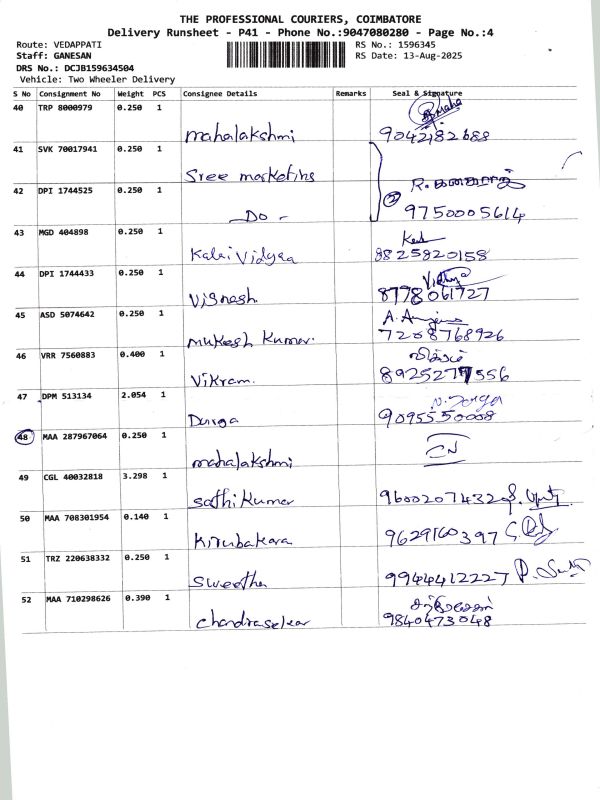 THE PROFESSIONAL COURIERS, COIMBATORE
Delivery Runsheet - P41 - Phone No.:9047080280 - Page No.:4
Route: VEDAPPATI
RS No.: 1596345
Staff: GANESAN
RS Date: 13-Aug-2025
DRS No.: DCJB159634504
Vehicle: Two Wheeler Delivery
S No Consignment No Weight PCS Consignee Details Remarks Seal & Signature
40 TRP 8000979 0.250 1 mahalakshmi Maha 9042182688
41 SVK 70017941 0.250 1 Sree marketing
42 DPI 1744525 0.250 1 - Do - 2 9750005614
43 MGD 404898 0.250 1 Kalai Vidyaa 8825820158
44 DPI 1744433 0.250 1 Vignash Vidhya 8778061727
45 ASD 5074642 0.250 1 Mukesh Kumar. 7208768926
46 VRR 7560883 0.400 1 Vikram. விக்ரம்
47 DPM 513134 2.054 1 Durga N. Durga 9095550008
48 MAA 287967064 0.250 1 mahalakshmi CN
49 CGL 40032818 3.298 1 sathikumar 9600207432
50 MAA 708301954 0.140 1 Kirubakara 9629160397
51 TRZ 220638332 0.250 1 Sweetha 9944412227
52 MAA 710298626 0.390 1 chandrasekar 9840473048